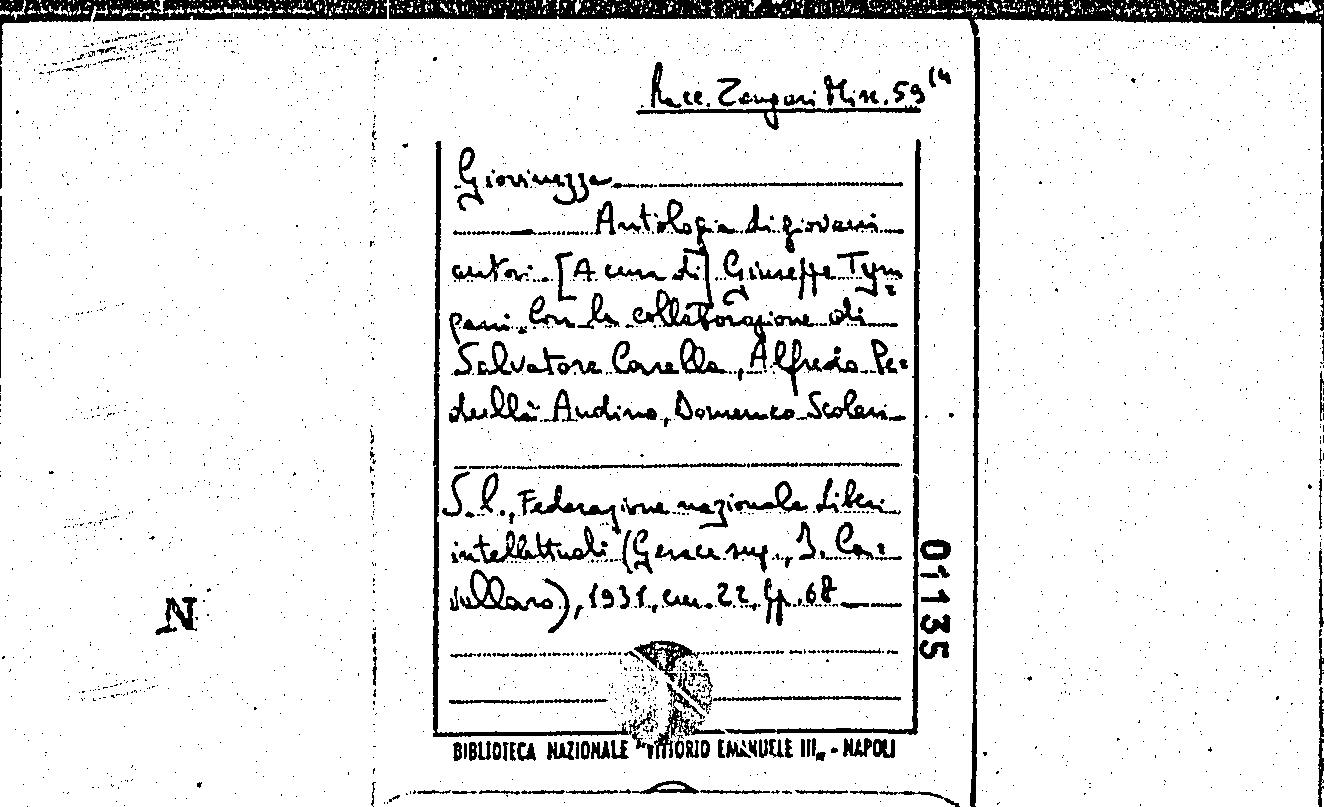 Racc. Zangari Misc. 59 (4
Giovinezza
Antologia di giovani
autori. [A cura di] Giuseppe Tym=
pani. Con la collaborazione di
Salvatore Carella, Alfredo Pe=
dullà Audino, Domenico Scolari
S. l., Federazione nazionale Liberi
intellettuali (Gerace sup., I. Ca=
vallaro), 1931, cm. 22. pp. 68
N
01135
BIBLIOTECA NAZIONALE "VITTORIO EMANUELE III„ - NAPOLI